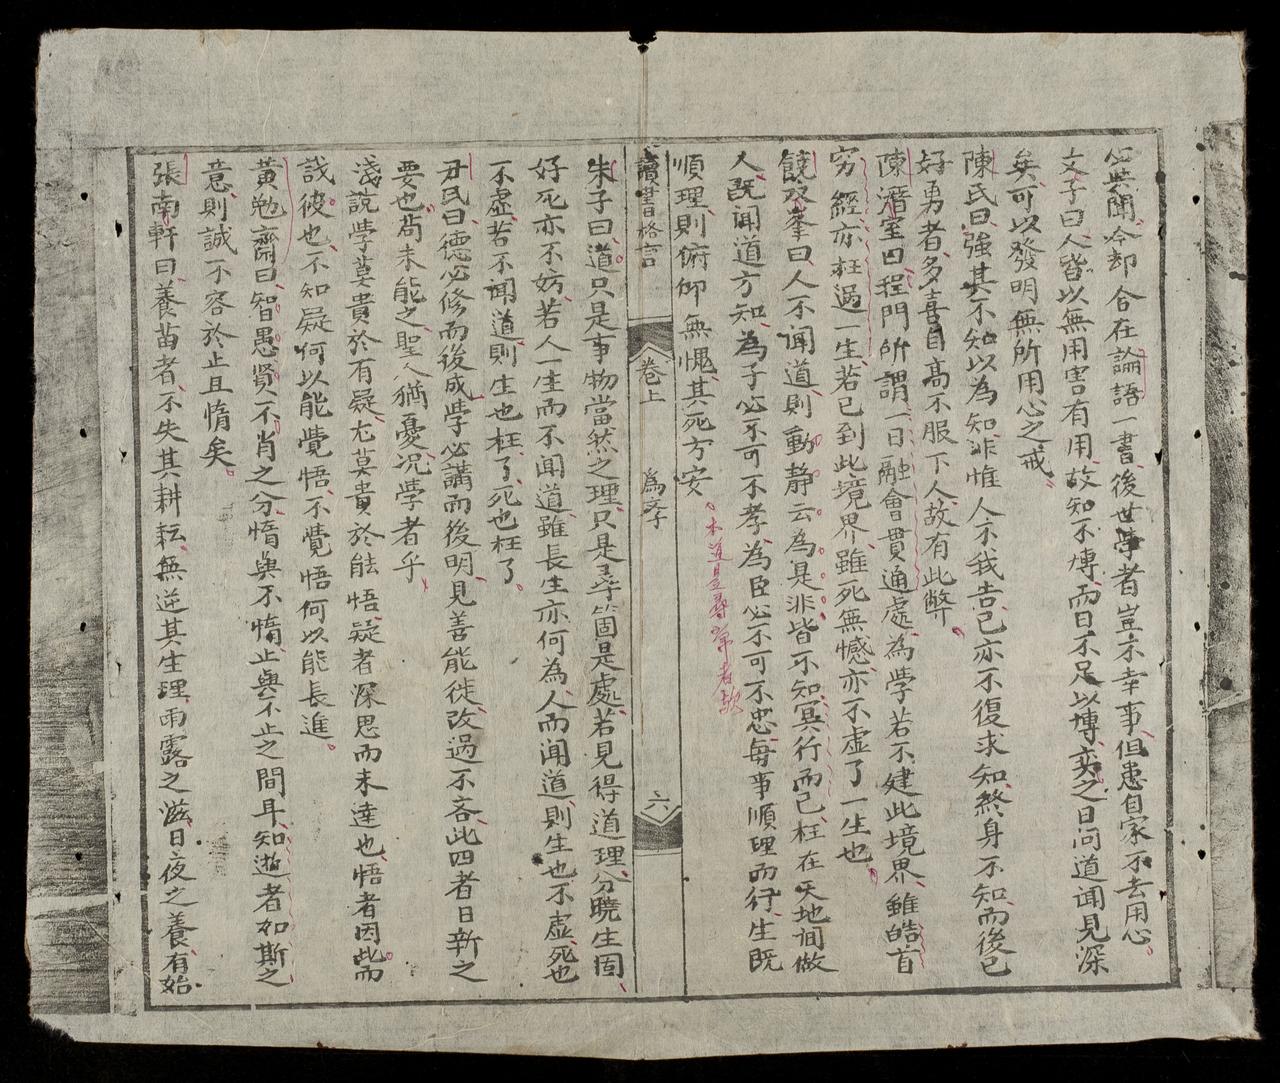 必與聞今却合在論語一書後世學者豈不幸事但患自家不去用心
文子曰人皆以無用害有用故知不博而日不足以博奕之日问道闻見深
矣可以發明無所用心之戒
陳氏曰強其不知以為知非惟人不我告己亦不復求知終身不知而後已
好勇者多喜自高不服下人故有此弊
陳潛室曰程門所謂一日融會貫通處為學若不建此境界雖皓首
穷經亦枉過一生若已到此境界雖死無憾亦不虛了一生也
饒双峯曰人不闻道則動静云為是非皆不知冥行而已枉在天地间做
人既闻道方知為子必不可不孝為臣必不可不忠每事順理而行生既
順理則俯仰無愧其死方安
讀書格言
卷上
為学
六
朱子曰道只是事物當然之理只是尋箇是處若見得道理分曉生固
好死亦不妨若人一生而不闻道雖長生亦何為人而闻道則生也不虛死也
不虛若不闻道則生也枉了死也枉了
尹氏曰德必修而後成學必講而後明見善能徙改過不吝此四者日新之
要也苟未能之聖人猶憂况學者乎
淺說學莫貴於有疑尤莫貴於能悟疑者深思而未達也悟者因此而
識彼也不知疑何以能覺悟不覺悟何以能長進
黃勉齋曰智愚賢不肖之分惰與不惰止與不止之間耳知逝者如斯之
意則誠不容於止且惰矣
張南軒曰養苗者不失其耕耘無逆其生理雨露之滋日夜之養有始